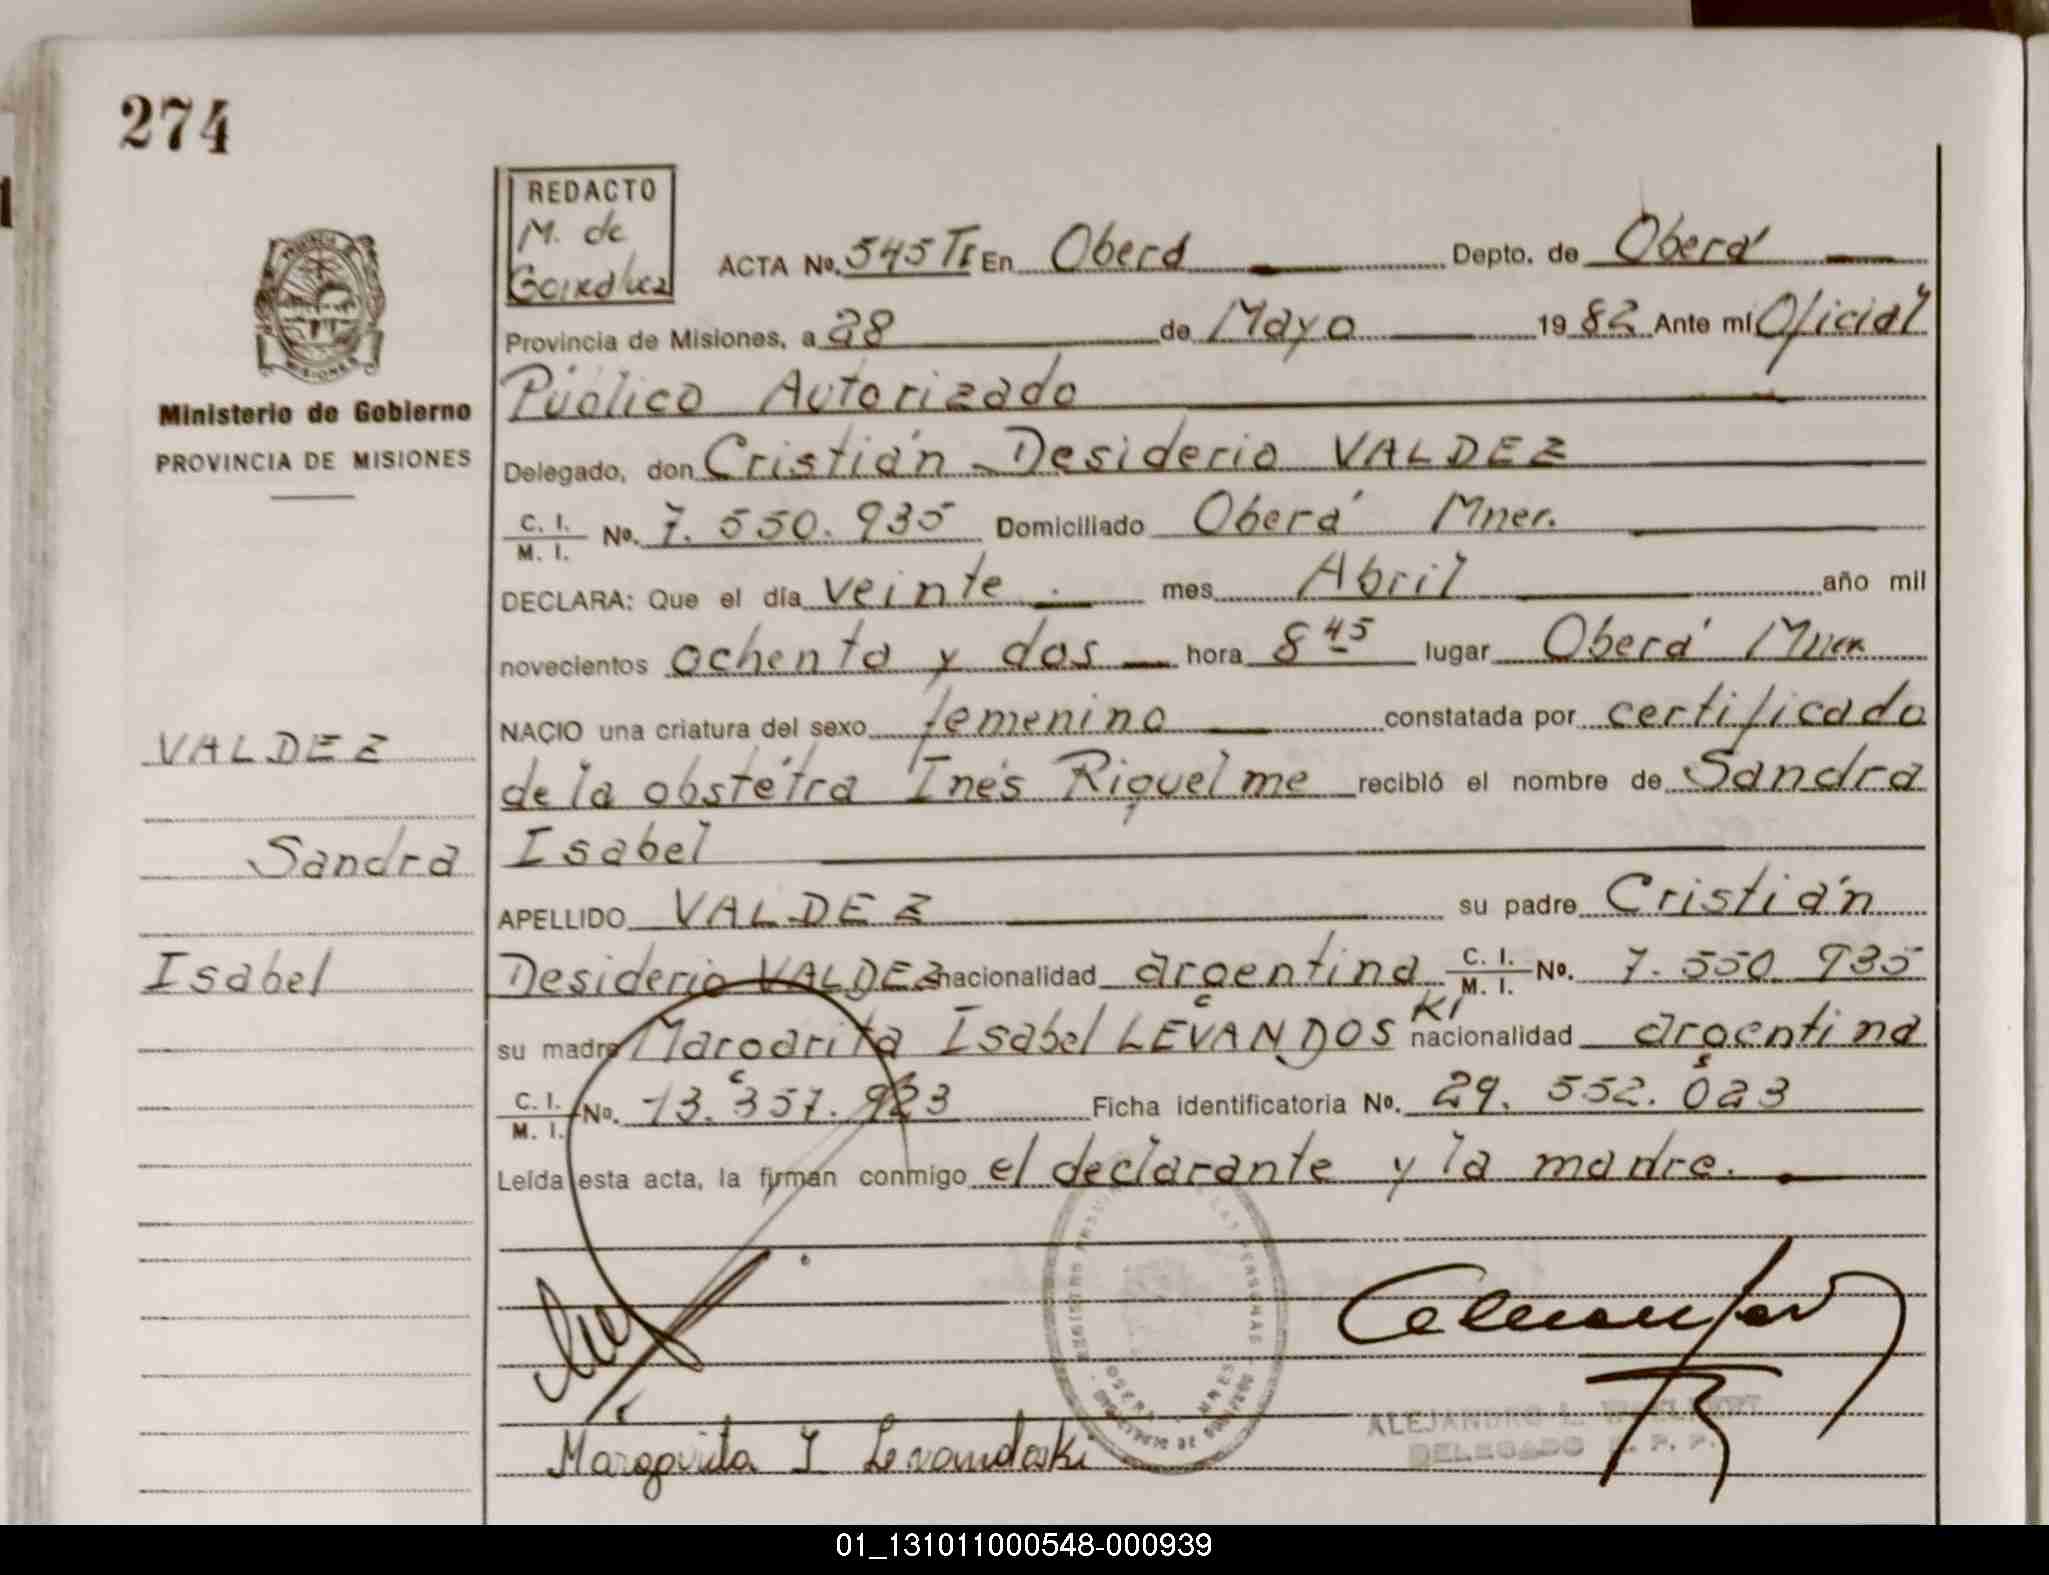 274
REDACTO
M. de
Gonzalez
ACTA No. 545 Tr En Oberá Depto. de Oberá
Provincia de Misiones, a 28 de Mayo 1982 Ante mí Oficial
Público Autorizado
Ministerio de Gobierno
PROVINCIA DE MISIONES
Delegado, don Cristián Desiderio VALDEZ
C. I.
M. I. No. 7.550.935 Domiciliado Oberá Mnes.
DECLARA: Que el día veinte mes Abril año mil
novecientos ochenta y dos hora 8 45 lugar Oberá Mnes
NACIO una criatura del sexo femenino constatada por certificado
de la obstétra Inés Riquelme recibió el nombre de Sandra
Isabel
VALDEZ
Sandra
Isabel
APELLIDO VALDEZ su padre Cristián
Desiderio VALDEZ nacionalidad argentina C. I.
M. I. No. 7.550.935
su madre Margarita Isabel LEVANDOSKI nacionalidad argentina
C. I.
M. I. No. 13.357.923 Ficha identificatoria No. 29.552.023
Leída esta acta, la firman conmigo el declarante y la madre.
Margarita I Levandoski
ALEJANDRO L.
DELEGADO R. P. P.
01_131011000548-000939